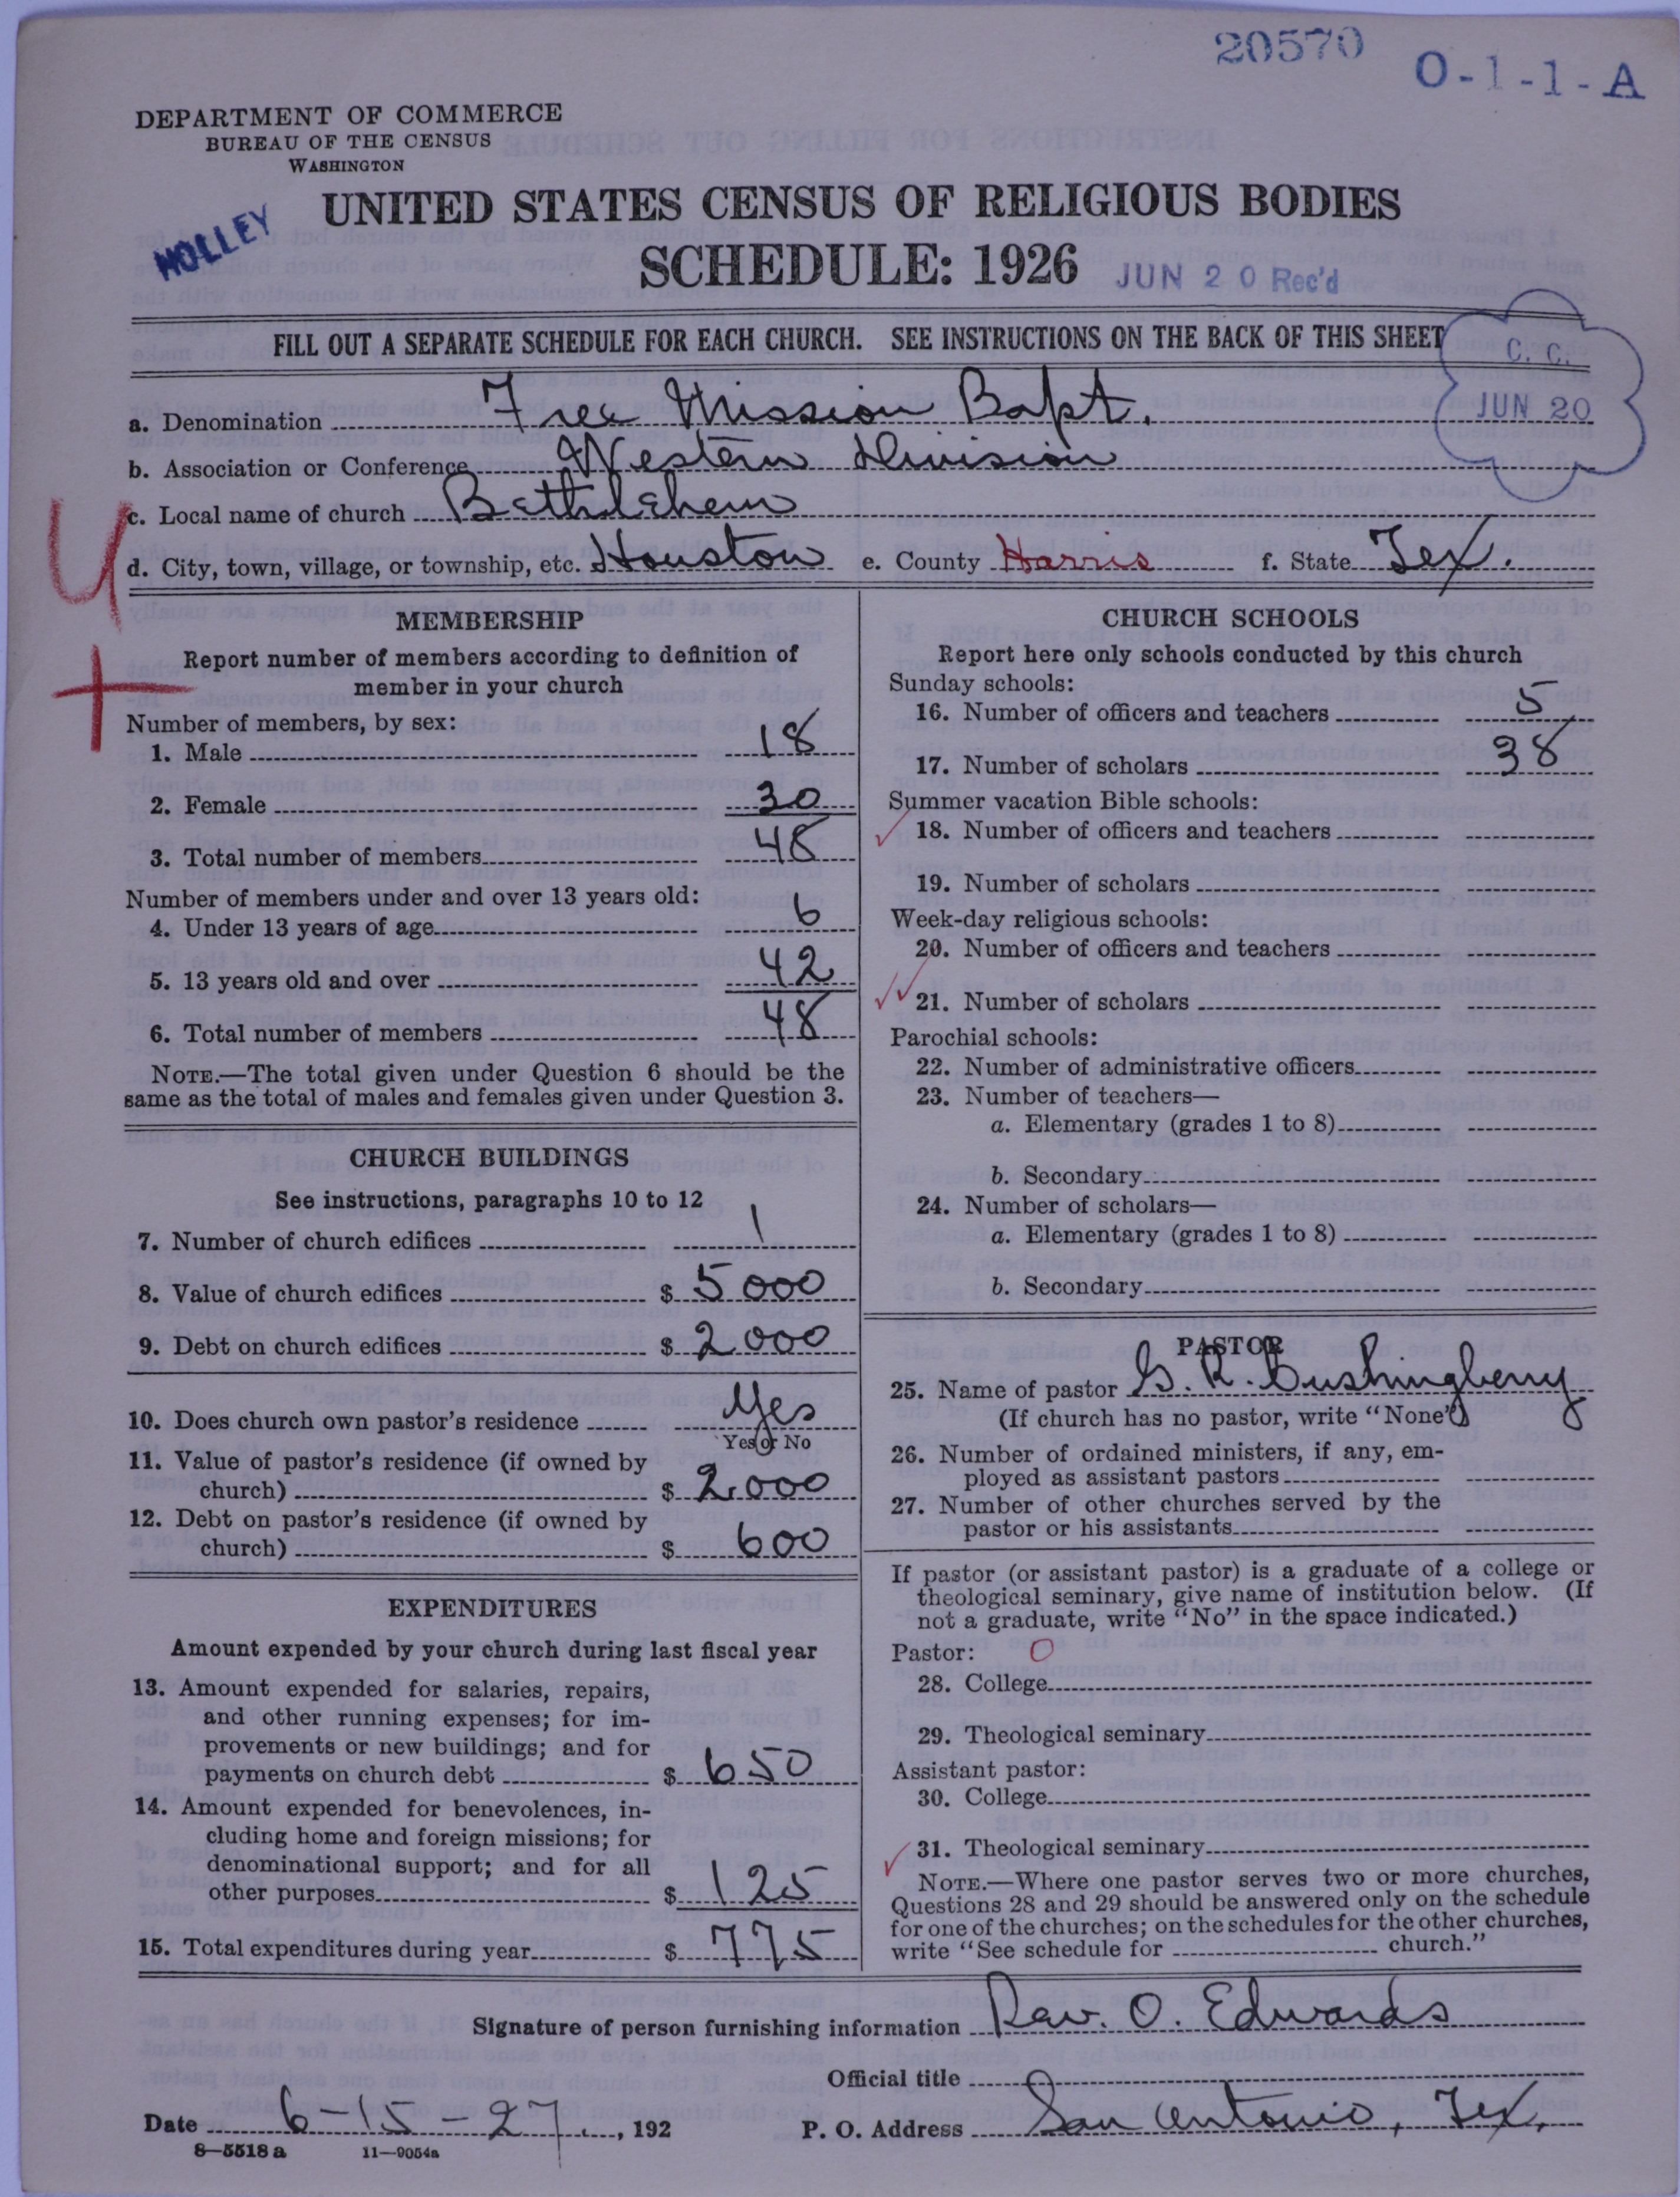 20570
O-1-1-A
DEPARTMENT OF COMMERCE
BUREAU OF THE CENSUS
WASHINGTON
UNITED STATES CENSUS OF RELIGIOUS BODIES
HOLLEY
SCHEDULE: 1926 JUN 20 Rec'd
FILL OUT A SEPARATE SCHEDULE FOR EACH CHURCH. SEE INSTRUCTIONS ON THE BACK OF THIS SHEET
C. C.
JUN 20
a. Denomination Free Mission Bapt.
b. Association or Conference Western Division
c. Local name of church Bethlehem
d. City, town, village, or township, etc. Houston e. County Harris f. State Tex.
MEMBERSHIP
Report number of members according to definition of
member in your church
Number of members, by sex:
1. Male 18
2. Female 30
3. Total number of members 48
Number of members under and over 13 years old:
4. Under 13 years of age 6
5. 13 years old and over 42
6. Total number of members 48
NOTE.—The total given under Question 6 should be the
same as the total of males and females given under Question 3.
CHURCH BUILDINGS
See instructions, paragraphs 10 to 12
7. Number of church edifices 1
8. Value of church edifices $ 5000
9. Debt on church edifices $ 2000
10. Does church own pastor's residence Yes
Yes or No
11. Value of pastor's residence (if owned by
church) $ 2,000
12. Debt on pastor's residence (if owned by
church) $ 600
EXPENDITURES
Amount expended by your church during last fiscal year
13. Amount expended for salaries, repairs,
and other running expenses; for im-
provements or new buildings; and for
payments on church debt $ 650
14. Amount expended for benevolences, in-
cluding home and foreign missions; for
denominational support; and for all
other purposes $ 125
15. Total expenditures during year $ 775
CHURCH SCHOOLS
Report here only schools conducted by this church
Sunday schools:
16. Number of officers and teachers 5
17. Number of scholars 38
Summer vacation Bible schools:
18. Number of officers and teachers
19. Number of scholars
Week-day religious schools:
20. Number of officers and teachers
21. Number of scholars
Parochial schools:
22. Number of administrative officers
23. Number of teachers—
a. Elementary (grades 1 to 8)
b. Secondary
24. Number of scholars—
a. Elementary (grades 1 to 8)
b. Secondary
PASTOR
25. Name of pastor G. R. Cushingberry
(If church has no pastor, write "None")
26. Number of ordained ministers, if any, em-
ployed as assistant pastors
27. Number of other churches served by the
pastor or his assistants
If pastor (or assistant pastor) is a graduate of a college or
theological seminary, give name of institution below. (If
not a graduate, write "No" in the space indicated.)
Pastor: O
28. College
29. Theological seminary
Assistant pastor:
30. College
31. Theological seminary
NOTE.—Where one pastor serves two or more churches,
Questions 28 and 29 should be answered only on the schedule
for one of the churches; on the schedules for the other churches,
write "See schedule for church."
Signature of person furnishing information Rev. O. Edwards
Official title
Date 6-15-27, 192 P. O. Address San Antonio, Tex.
8—5518 a 11—9054a